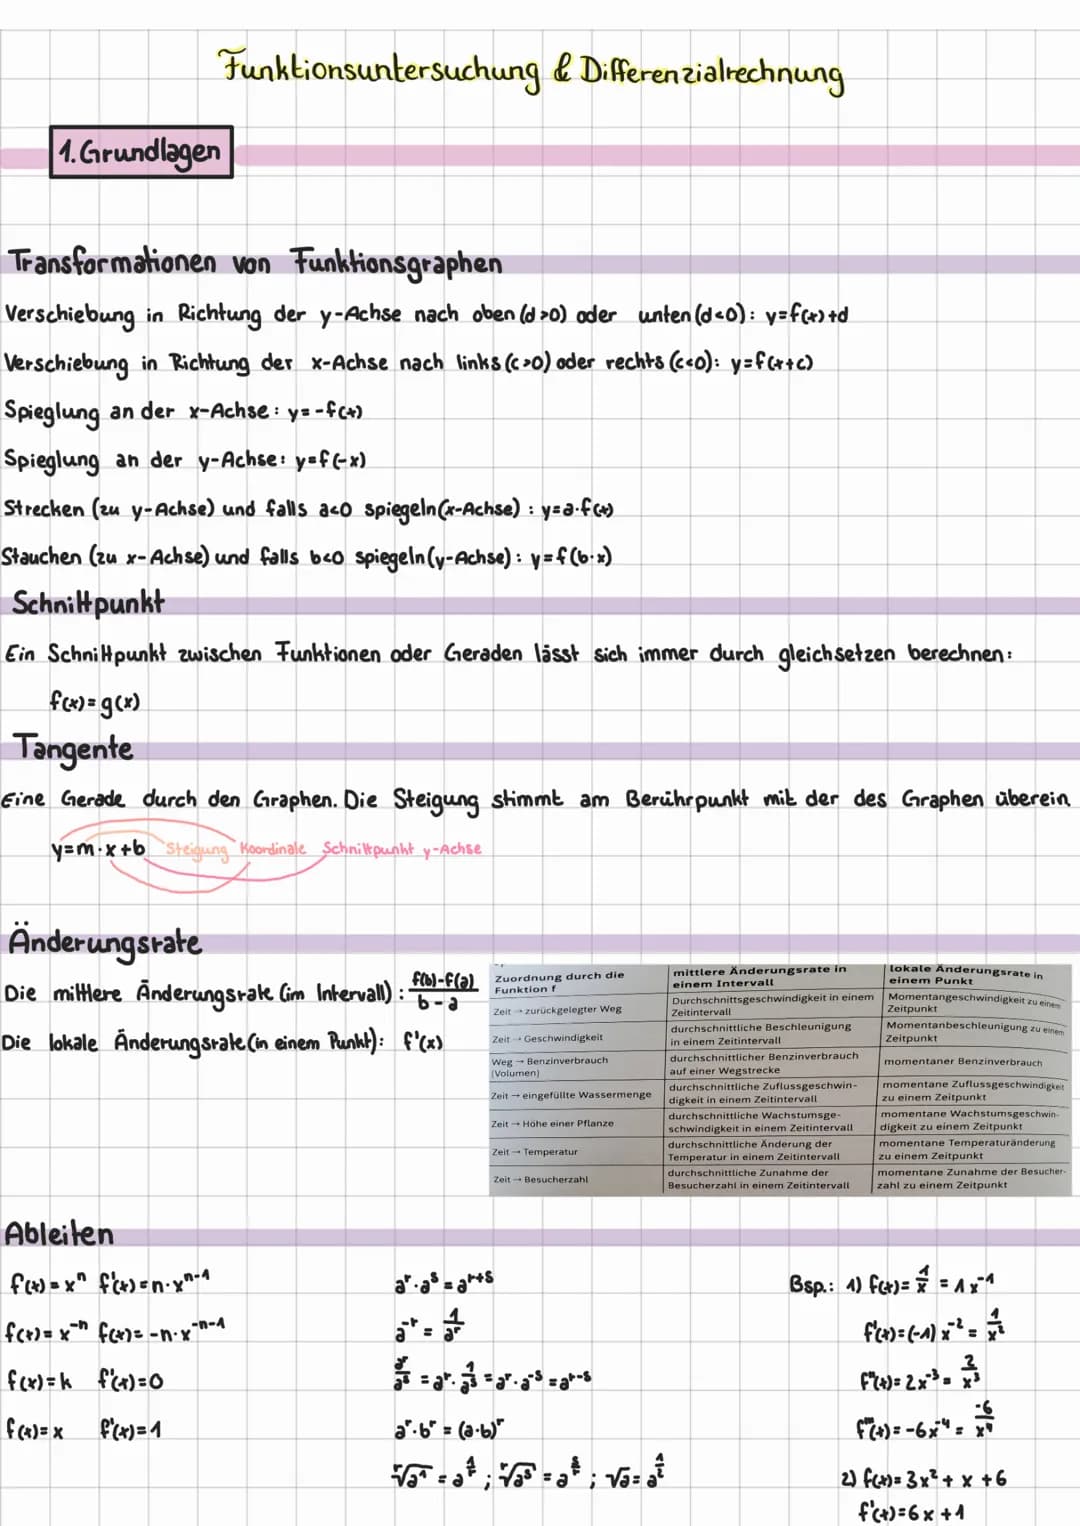 Funktionsuntersuchung & Differenzialrechnung
1. Grundlagen
Transformationen von Funktionsgraphen
Verschiebung in Richtung der y-Achse nach oben (d>0) oder unten (d<0): y=f(x)+d
Verschiebung in Richtung der x-Achse nach links (c>0) oder rechts (c<0): y=f(x+c)
Spieglung an der x-Achse: y=-f(x)
Spieglung an der y-Achse: y=f(-x)
Strecken (zu y-Achse) und falls a<0 spiegeln (x-Achse): y=a·f(x)
Stauchen (zu x-Achse) und falls b<0 spiegeln (y-Achse): y=f(b·x)
Schnittpunkt
Ein Schnittpunkt zwischen Funktionen oder Geraden lässt sich immer durch gleichsetzen berechnen:
f(x)=g(x)
Tangente
Eine Gerade durch den Graphen. Die Steigung stimmt am Berührpunkt mit der des Graphen überein
y=m·x+b Steigung Koordinale Schnittpunkt y-Achse
Änderungsrate
Die mittlere Änderungsrate (im Intervall): f(b)-f(a) / b-a
Die lokale Änderungsrate (in einem Punkt): f'(x)
Zuordnung durch die Funktion f | mittlere Änderungsrate in einem Intervall | lokale Änderungsrate in einem Punkt
Zeit → zurückgelegter Weg | Durchschnittsgeschwindigkeit in einem Zeitintervall | Momentangeschwindigkeit zu einem Zeitpunkt
Zeit → Geschwindigkeit | durchschnittliche Beschleunigung in einem Zeitintervall | Momentanbeschleunigung zu einem Zeitpunkt
Weg → Benzinverbrauch (Volumen) | durchschnittlicher Benzinverbrauch auf einer Wegstrecke | momentaner Benzinverbrauch
Zeit → eingefüllte Wassermenge | durchschnittliche Zuflussgeschwin-digkeit in einem Zeitintervall | momentane Zuflussgeschwindigkeit zu einem Zeitpunkt
Zeit → Höhe einer Pflanze | durchschnittliche Wachstumsge-schwindigkeit in einem Zeitintervall | momentane Wachstumsgeschwin-digkeit zu einem Zeitpunkt
Zeit → Temperatur | durchschnittliche Änderung der Temperatur in einem Zeitintervall | momentane Temperaturänderung zu einem Zeitpunkt
Zeit → Besucherzahl | durchschnittliche Zunahme der Besucherzahl in einem Zeitintervall | momentane Zunahme der Besucher-zahl zu einem Zeitpunkt
Ableiten
f(x)=xⁿ f'(x)=n·xⁿ⁻¹
f(x)=x⁻ⁿ f(x)=-n·x⁻ⁿ⁻¹
f(x)=k f'(x)=0
f(x)=x f'(x)=1
aʳ·aˢ=aʳ⁺ˢ
a⁻ʳ=1/aʳ
aʳ/aˢ=aʳ·1/aˢ=aʳ·a⁻ˢ=aʳ⁻ˢ
aʳ·bʳ=(a·b)ʳ
ʳ√a¹=a^(1/r); ʳ√aˢ=a^(s/r); √a=a^(1/2)
Bsp.: 1) f(x)=1/x=1x⁻¹
f'(x)=(-1)x⁻²=1/x²
f''(x)=2x⁻³=2/x³
f'''(x)=-6x⁻⁴=-6/x⁴
2) f(x)=3x²+x+6
f'(x)=6x+1